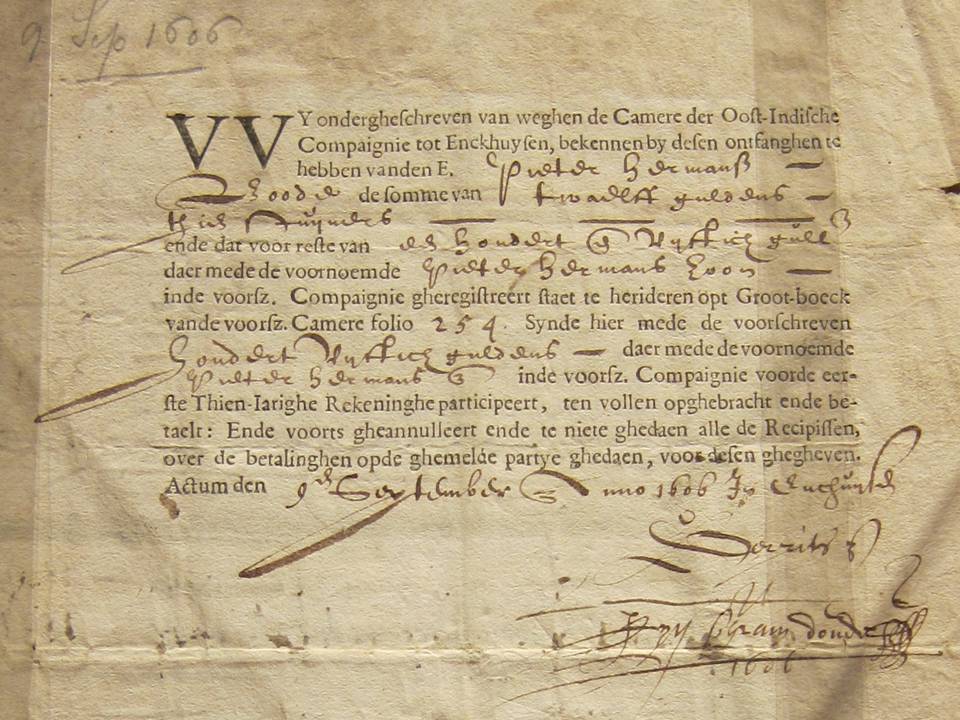 9 Sep 1606
VVY ondergheſchreven van weghen de Camere der Ooſt-Indiſche
Compaignie tot Enckhuyſen, bekennen by deſen ontfanghen te
hebben vanden E. Pieter Hermansz
de ſomme van twaelff guldens
thien stuyvers
ende dat voor reſte van een hondert en Vyftich gull
daer mede de voornoemde Pieter Hermans zoon
inde voorſz. Compaignie gheregiſtreert ſtaet te herideren opt Groot-boeck
vande voorſz. Camere folio 254. Synde hier mede de voorſchreven
hondert Vyftich guldens daer mede de voornoemde
Pieter Hermans inde voorſz. Compaignie voorde eer-
ſte Thien-Iarighe Rekeninghe participeert, ten vollen opghebracht ende be-
taelt: Ende voorts gheannulleert ende te niete ghedaen alle de Recipiſſen,
over de betalinghen opde ghemelde partye ghedaen, voor deſen ghegheven.
Actum den 9en September Anno 1606 In Enchuysen
1606